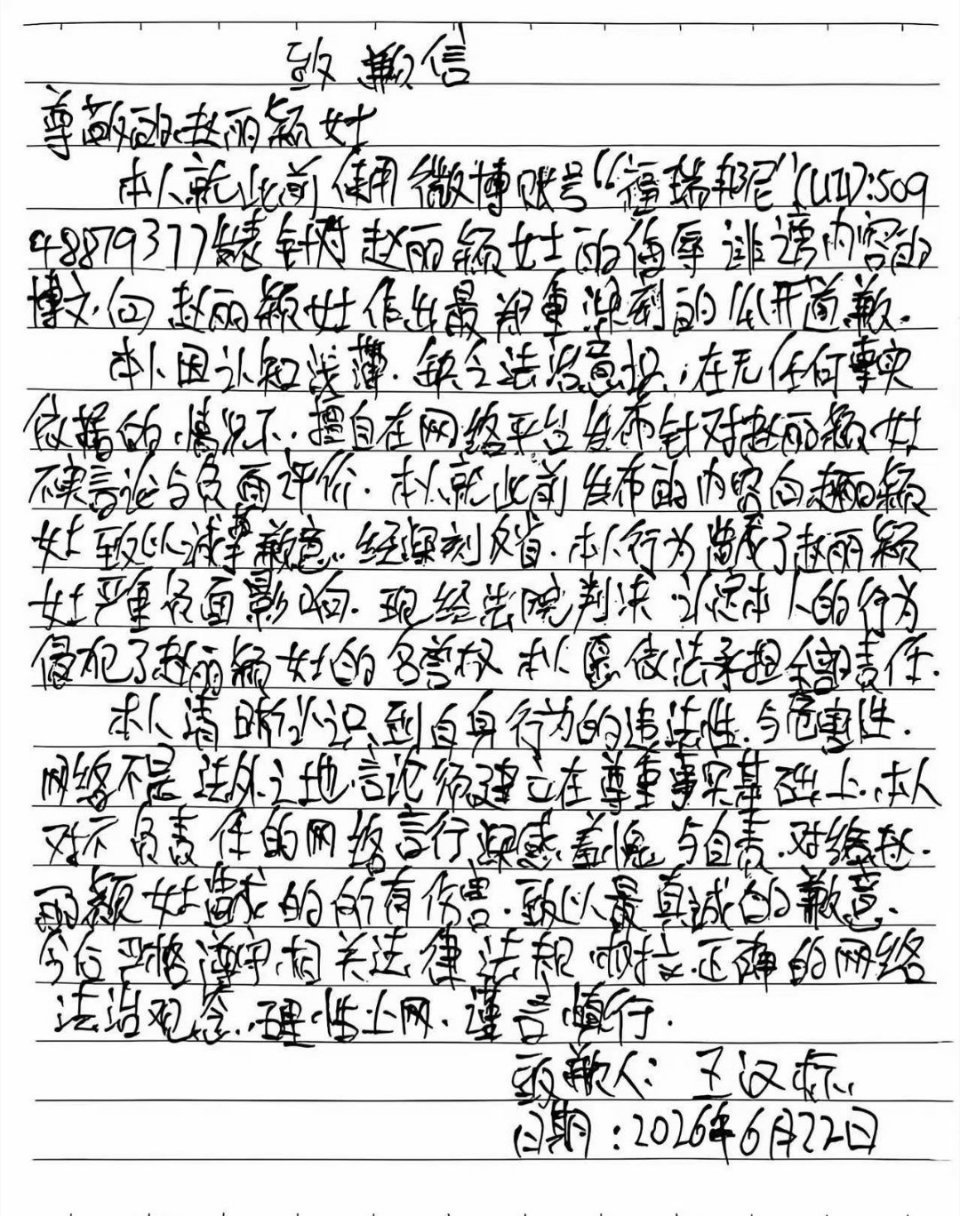 致歉信
尊敬的赵丽颖女士
本人就此前使用微博账号“福瑞邦尼”(UID:509
48879377)发表针对赵丽颖女士的侮辱诽谤内容的
博文.向赵丽颖女士作出最郑重深刻的公开道歉.
本人因认知浅薄.缺乏法治意识,在无任何事实
依据的情况下.擅自在网络平台发布针对赵丽颖女士
不实言论与负面评价.本人就此前发布的内容向赵丽颖
女士致以诚挚歉意.经深刻反省.本人行为造成了赵丽颖
女士严重负面影响.现经法院判决 认定本人的行为
侵犯了赵丽颖女士的名誉权 本人愿依法承担全部责任.
本人清晰认识到自身行为的违法性.与危害性.
网络不是法外之地.言论须建立在尊重事实基础上.本人
对不负责任的网络言行深感羞愧与自责.对给赵.
丽颖女士造成的所有伤害.致以最真诚的歉意.
今后严格遵守相关法律法规 树立正确的网络
法治观念.理性上网.谨言慎行.
致歉人: 王汉
日期:2026年6月22日